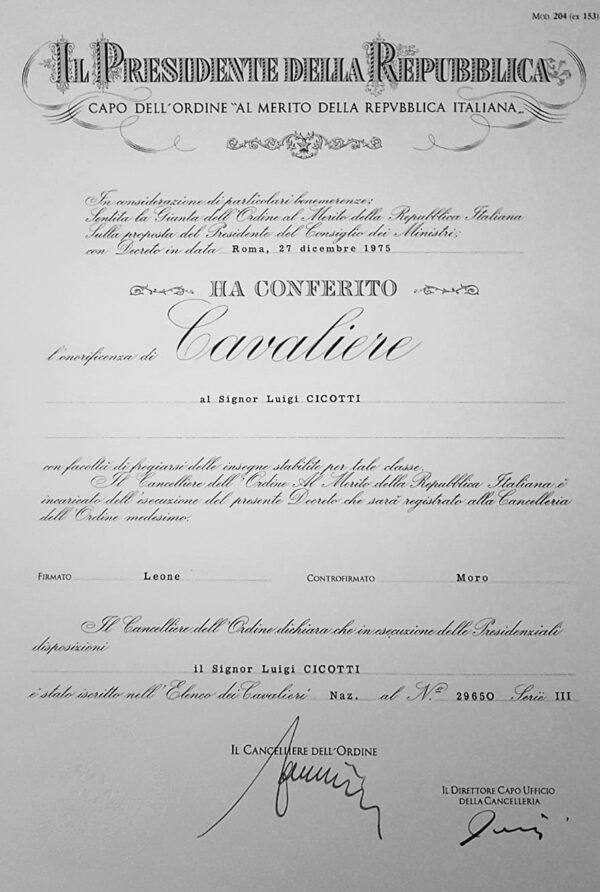 MOD. 204 (ex 153)
IL PRESIDENTE DELLA REPUBBLICA
CAPO DELL'ORDINE "AL MERITO DELLA REPVBBLICA ITALIANA„
In considerazione di particolari benemerenze;
Sentita la Giunta dell'Ordine al Merito della Repubblica Italiana
Sulla proposta del Presidente del Consiglio dei Ministri;
con Decreto in data Roma, 27 dicembre 1975
HA CONFERITO
l'onorificenza di Cavaliere
al Signor Luigi CICOTTI
con facoltà di fregiarsi delle insegne stabilite per tale classe.
Il Cancelliere dell'Ordine Al Merito della Repubblica Italiana è
incaricato dell'esecuzione del presente Decreto che sarà registrato alla Cancelleria
dell'Ordine medesimo.
FIRMATO Leone CONTROFIRMATO Moro
Il Cancelliere dell'Ordine dichiara che in esecuzione delle Presidenziali
disposizioni
il Signor Luigi CICOTTI
è stato iscritto nell'Elenco dei Cavalieri Naz. al N.º 29650 Serie III
IL CANCELLIERE DELL'ORDINE
IL DIRETTORE CAPO UFFICIO
DELLA CANCELLERIA